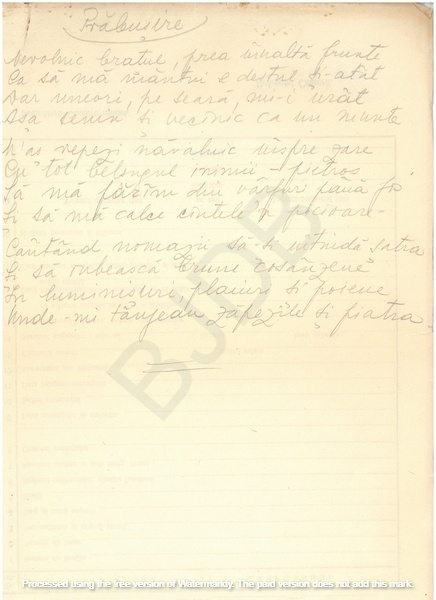 Prăbușire
Nevolnic brațul, prea înaltă frunte
Ca să mă mântui e destul și-atât
Dar uneori, pe seară, mi-i urât
Așa senin și vecinic ca un munte
M'aș repezi năvalnic înspre zare
Cu tot belșugul inimii - pietros
Să mă fărâm din vârfuri până jos
Și să mă calce cintele'n picioare-
Cântând nomazii să-și întindă șatra
Și să iubească brune cosânzene
În luminișuri, plaiuri și poiene
Unde-mi tânjeau zăpezile și piatra
BJDB
Processed using the free version of Watermarkly. The paid version does not add this mark.